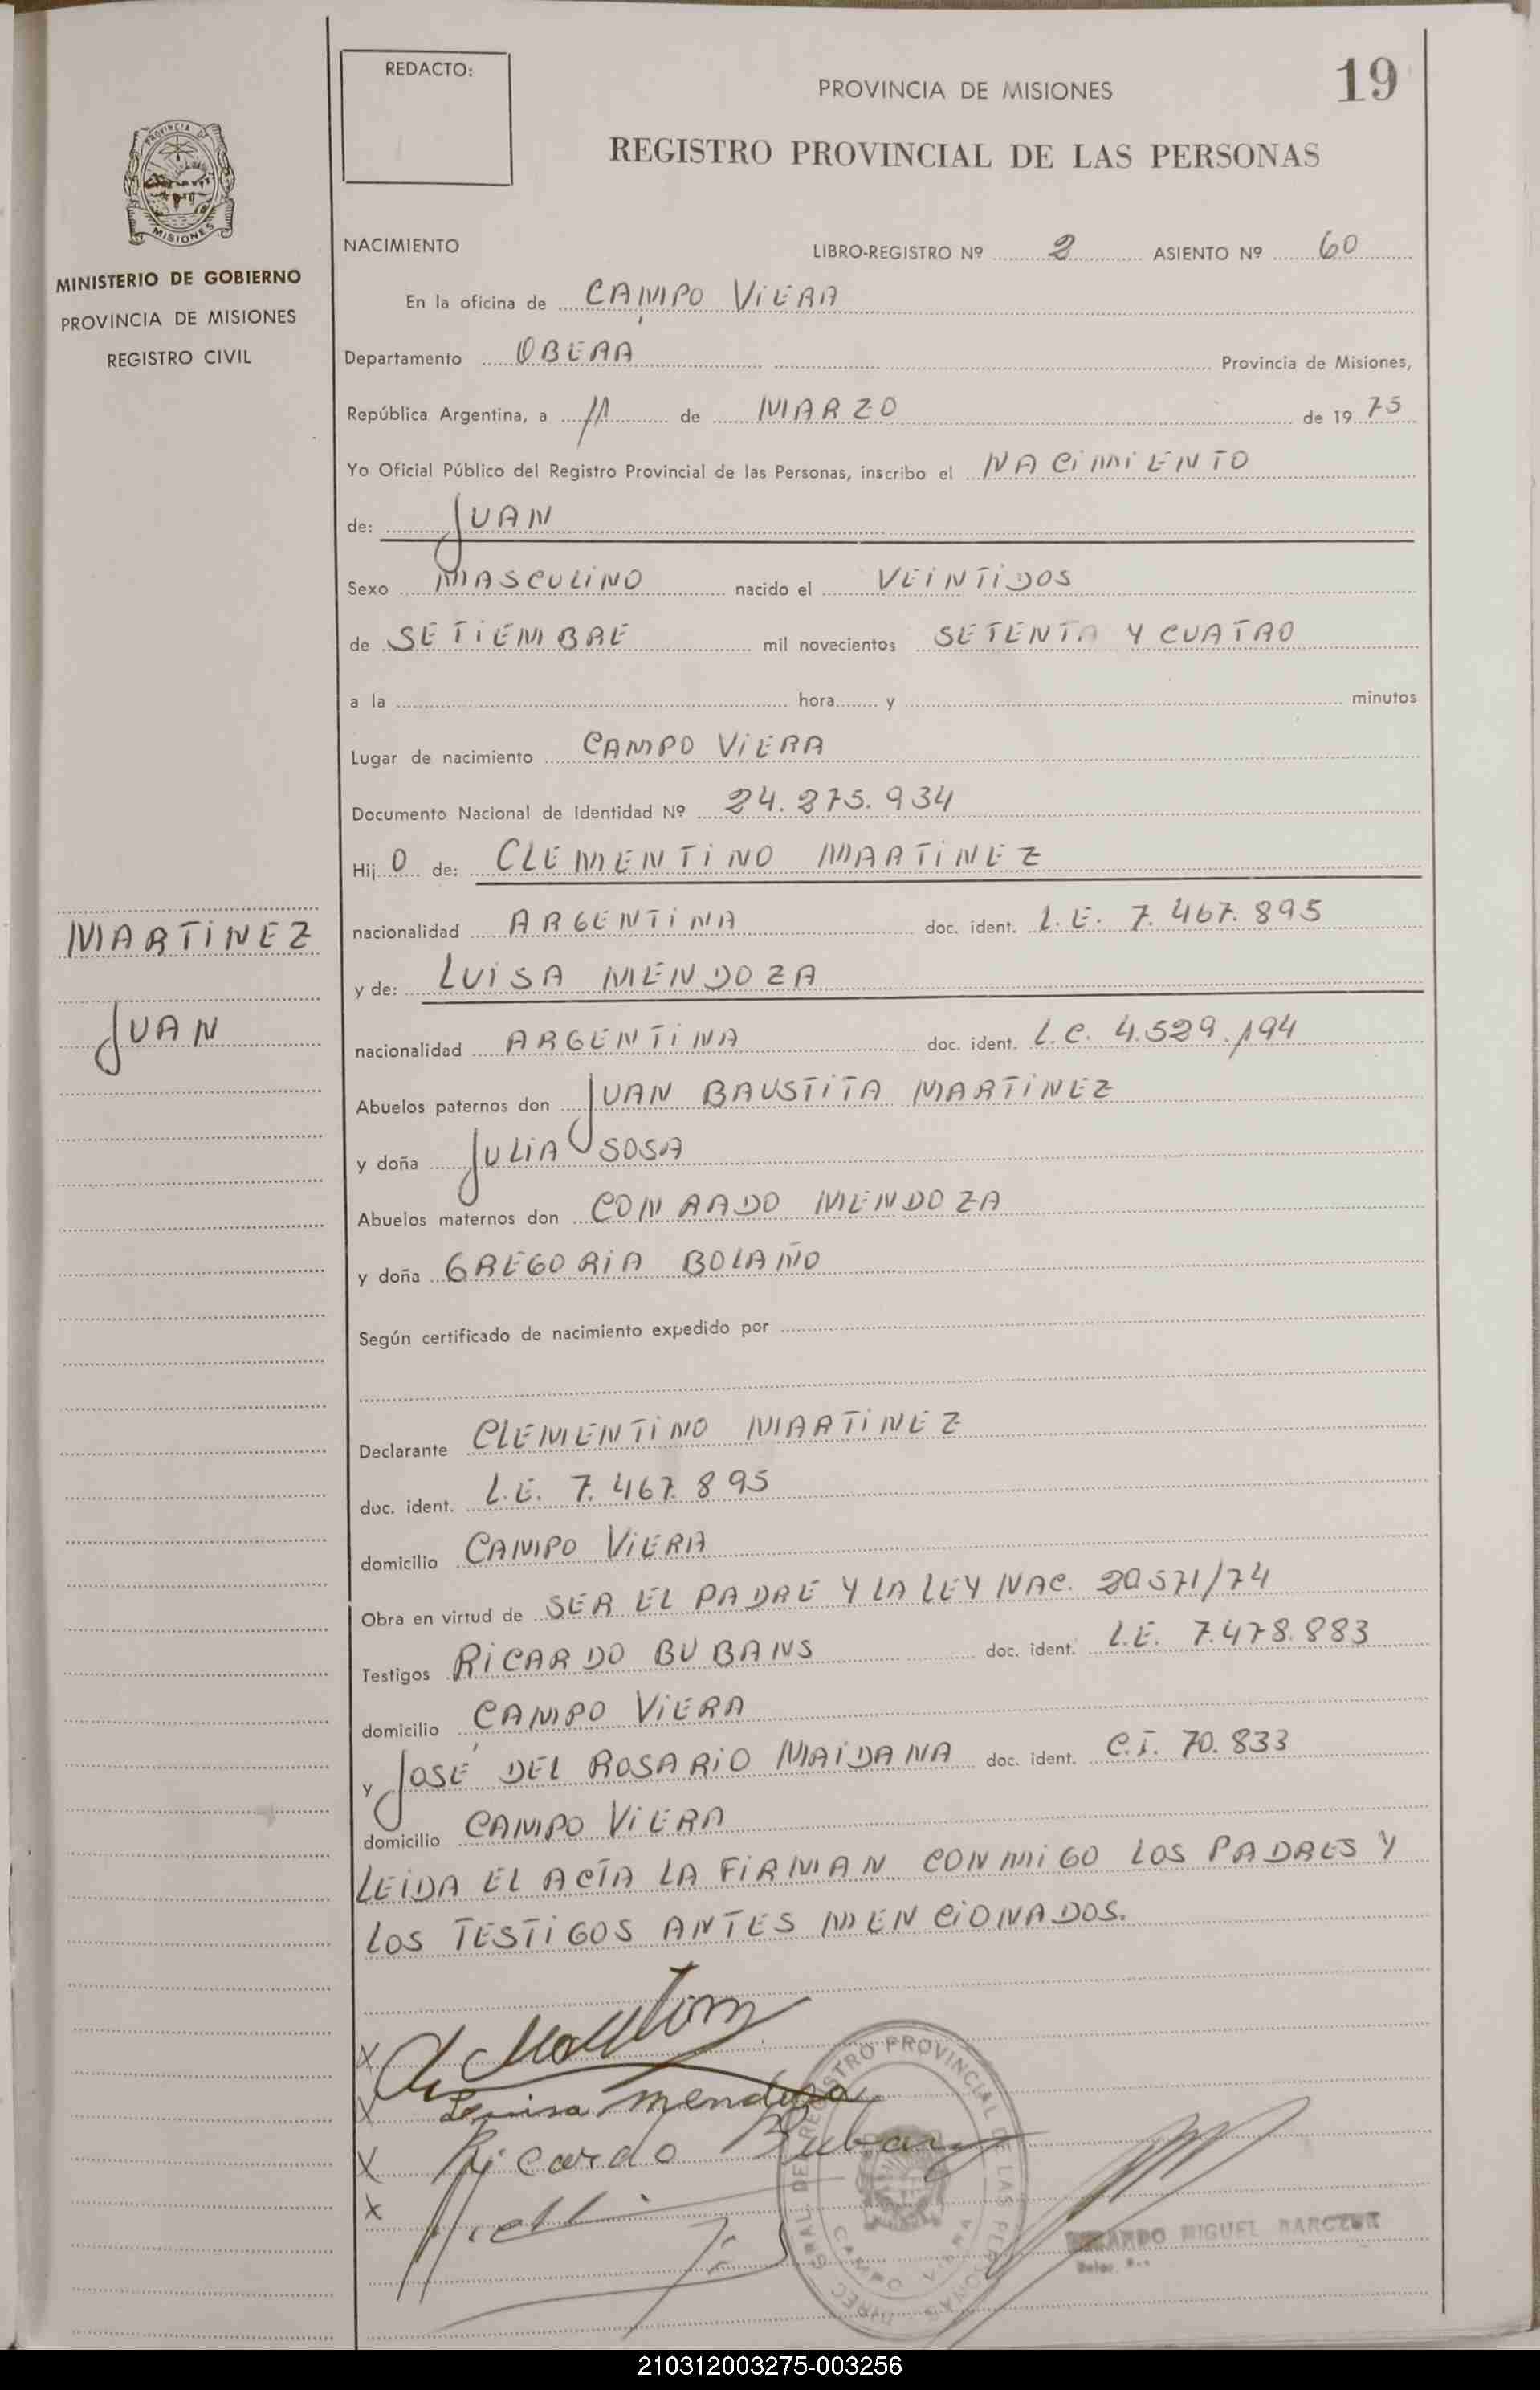 REDACTO:
PROVINCIA DE MISIONES
19
REGISTRO PROVINCIAL DE LAS PERSONAS
PROVINCIA DE
MISIONES
MINISTERIO DE GOBIERNO
PROVINCIA DE MISIONES
REGISTRO CIVIL
NACIMIENTO
LIBRO-REGISTRO Nº 2 ASIENTO Nº 60
En la oficina de CAMPO VIERA
Departamento OBERA Provincia de Misiones,
República Argentina, a 11 de MARZO de 1975
Yo Oficial Público del Registro Provincial de las Personas, inscribo el NACIMIENTO
de: JUAN
Sexo MASCULINO nacido el VEINTIDOS
de SETIEMBRE mil novecientos SETENTA Y CUATRO
a la hora y minutos
Lugar de nacimiento CAMPO VIERA
Documento Nacional de Identidad Nº 24.275.934
Hij O de: CLEMENTINO MARTINEZ
MARTINEZ
nacionalidad ARGENTINA doc. ident. L.E. 7.467.895
y de: LUISA MENDOZA
JUAN
nacionalidad ARGENTINA doc. ident. L.C. 4.529.194
Abuelos paternos don JUAN BAUSTITA MARTINEZ
y doña JULIA SOSA
Abuelos maternos don CONRADO MENDOZA
y doña GREGORIA BOLAÑO
Según certificado de nacimiento expedido por
Declarante CLEMENTINO MARTINEZ
doc. ident. L.E. 7.467.895
domicilio CAMPO VIERA
Obra en virtud de SER EL PADRE Y LA LEY NAC. 20571/74
Testigos RICARDO BUBANS doc. ident. L.E. 7.478.883
domicilio CAMPO VIERA
y JOSÉ DEL ROSARIO MAIDANA doc. ident. C.I. 70.833
domicilio CAMPO VIERA
LEIDA EL ACTA LA FIRMAN CONMIGO LOS PADRES Y
LOS TESTIGOS ANTES MENCIONADOS.
X
X Luisa Mendoza
X Ricardo Bubans
X
REGISTRO PROVINCIAL DE LAS PERSONAS
CAMPO VIERA
MIGUEL
210312003275-003256